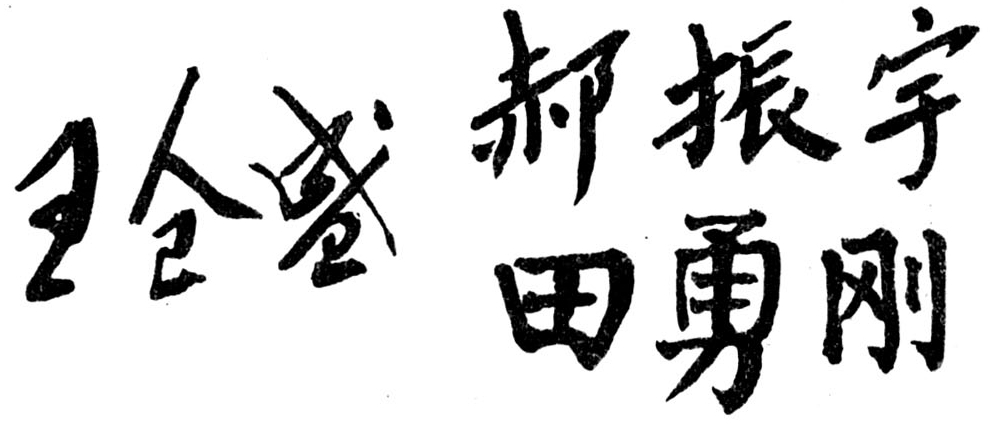 王全盛
郝振宇
田勇刚